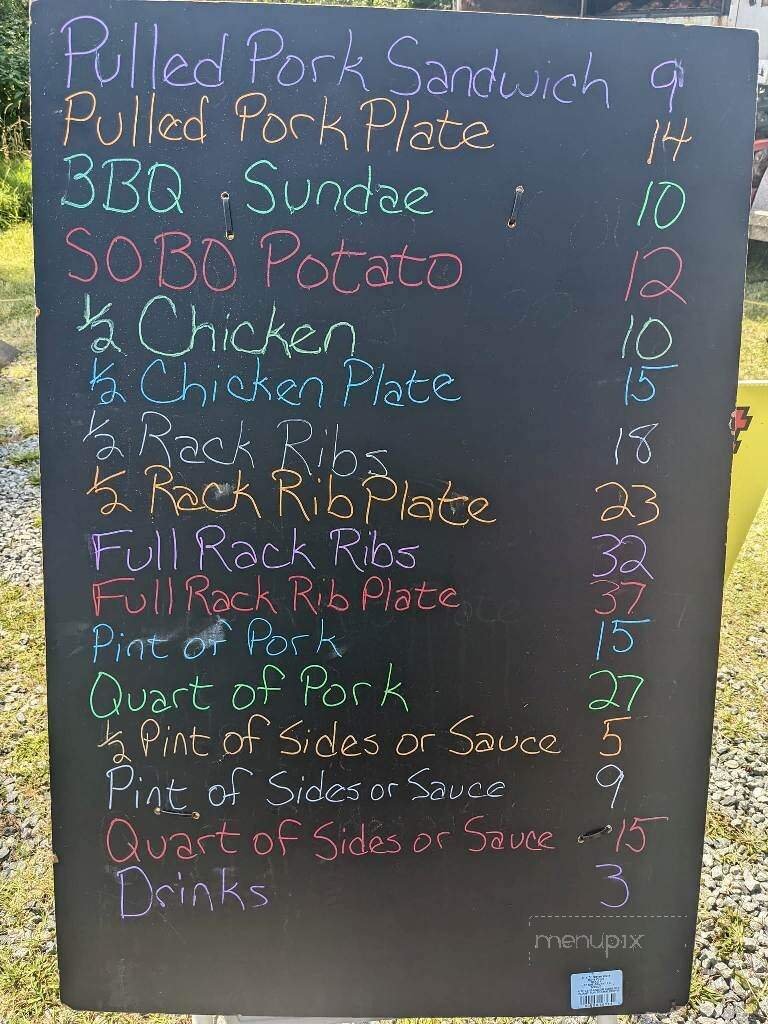 Pulled Pork Sandwich 9
Pulled Pork Plate 14
BBQ Sundae 10
SOBO Potato 12
1/2 Chicken 10
1/2 Chicken Plate 15
1/2 Rack Ribs 18
1/2 Rack Rib Plate 23
Full Rack Ribs 32
Full Rack Rib Plate 37
Pint of Pork 15
Quart of Pork 27
1/2 Pint of Sides or Sauce 5
Pint of Sides or Sauce 9
Quart of Sides or Sauce 15
Drinks 3
menupix